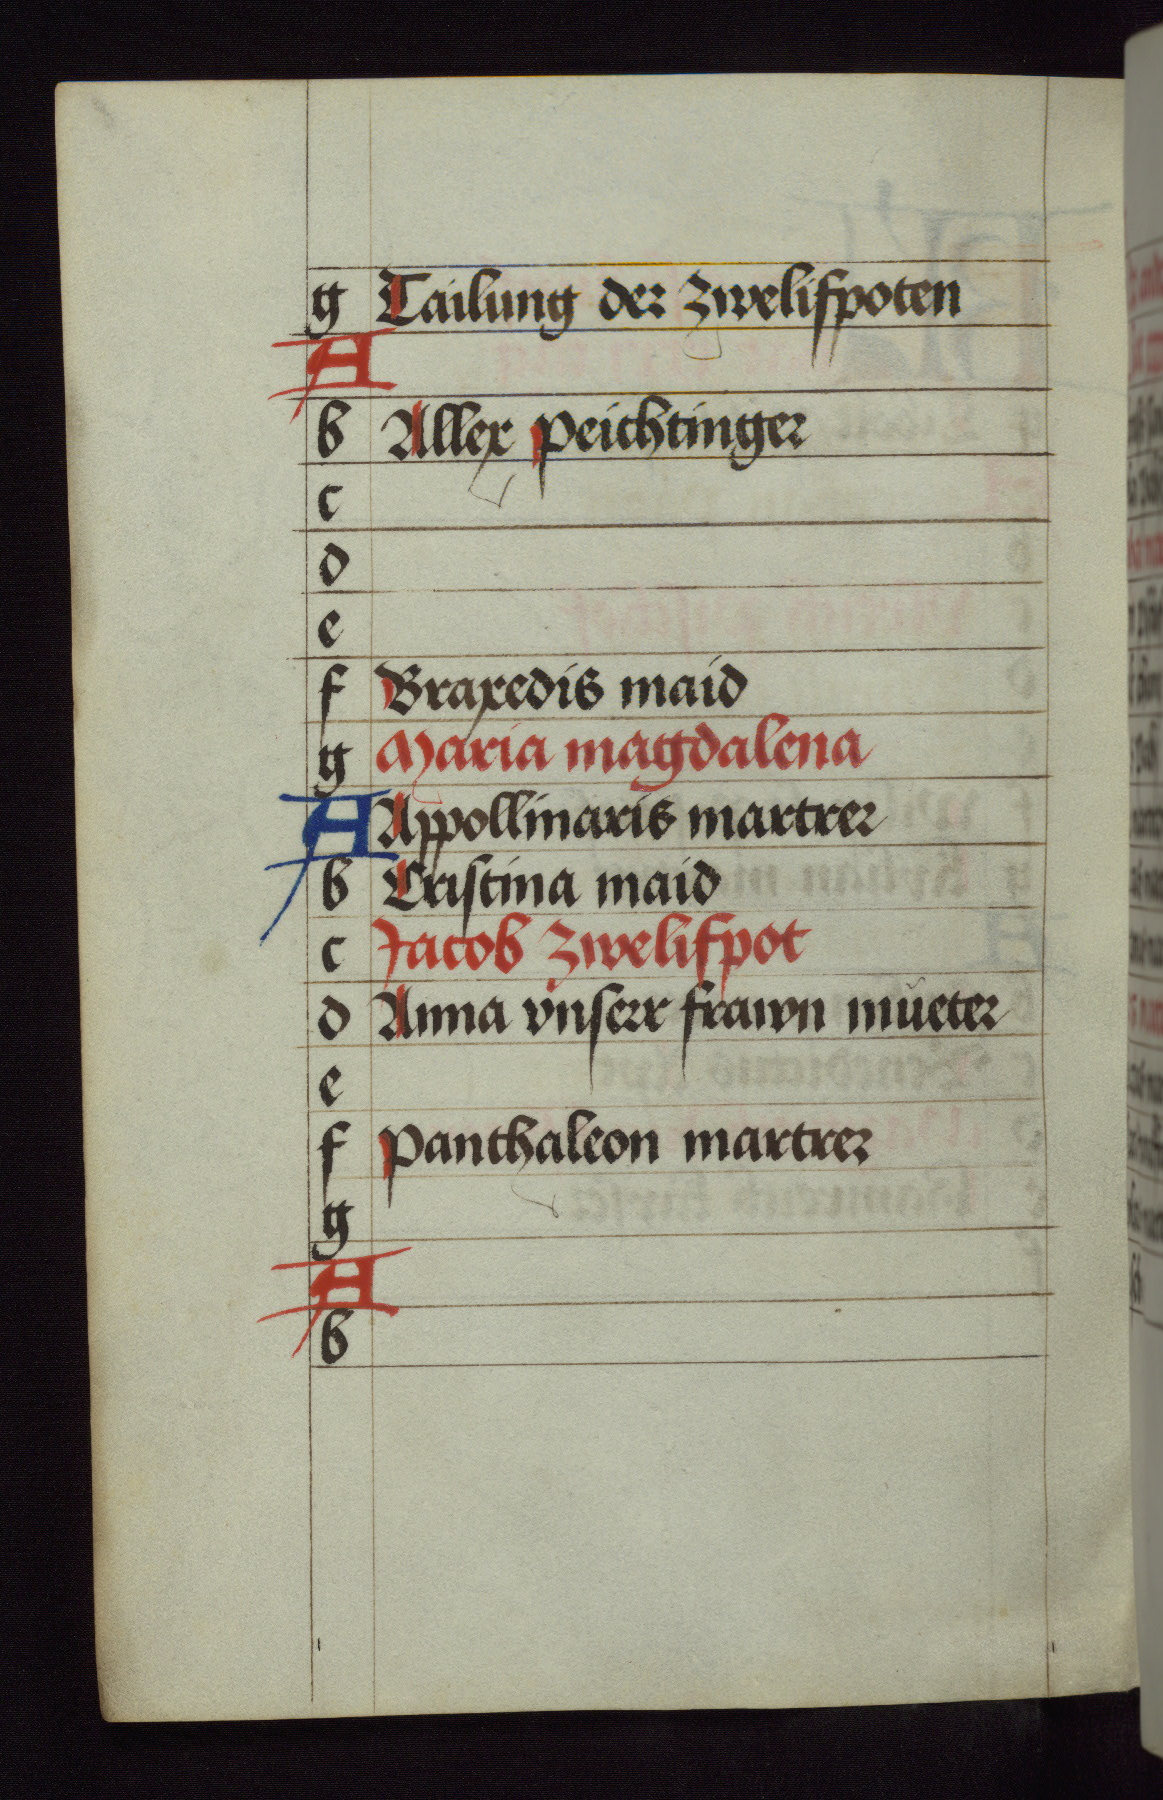 g Tailung der zwelifpoten
A
b Allex peichtinger
c
d
e
f Braxedis maid
g Maria magdalena
A Appollinaris martrer
b Cristina maid
c Jacob zwelifpot
d Anna vnserr frawn můeter
e
f Panthaleon martrer
g
A
b